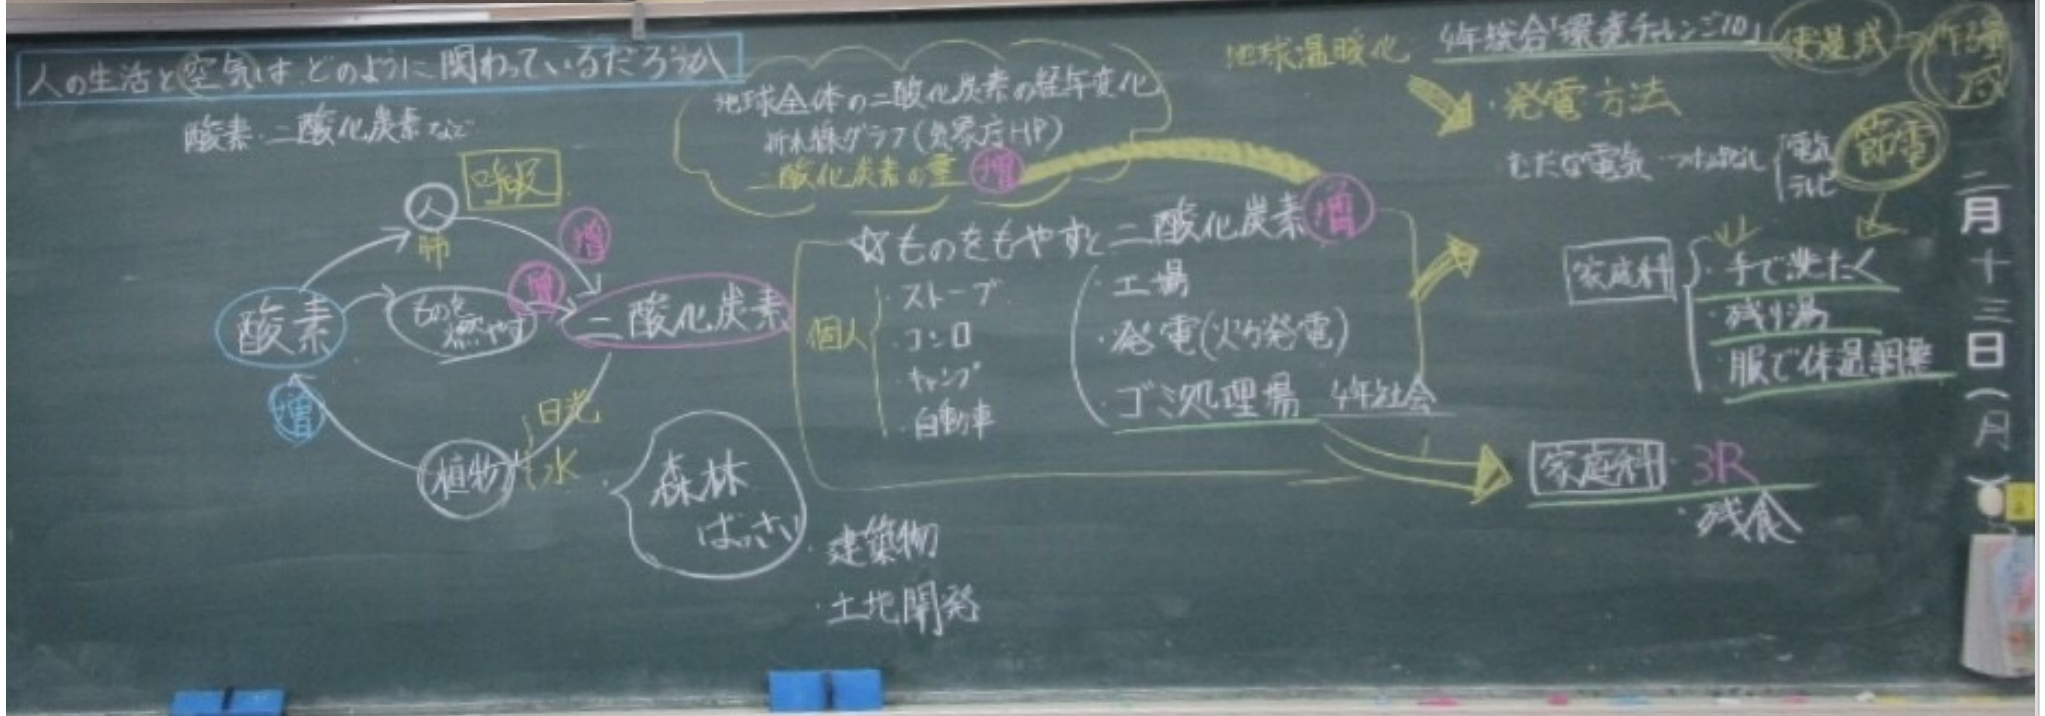 人の生活と空気は どのように関わっているだろうか
酸素・二酸化炭素など
呼吸
人
肺
増
増
酸素
ものを
燃やす
二酸化炭素
増
日光
水
植物
森林
ばっさい
・建築物
・土地開発
地球全体の二酸化炭素の経年変化
折れ線グラフ(気象庁HP)
二酸化炭素の量 増
☆ものをもやすと二酸化炭素 増
個人
・ストーブ
・コンロ
・キャンプ
・自動車
・工場
・発電(火力発電)
・ゴミ処理場 4年社会
地球温暖化
4年総合「環境チャレンジ10」
使量減
作る量
減
・発電方法
むだな電気 つけっぱなし
電気
テレビ
節電
家庭科
・手で洗たく
・残り湯
・服で体温調整
家庭科 3R
・残食
二月十三日(月)